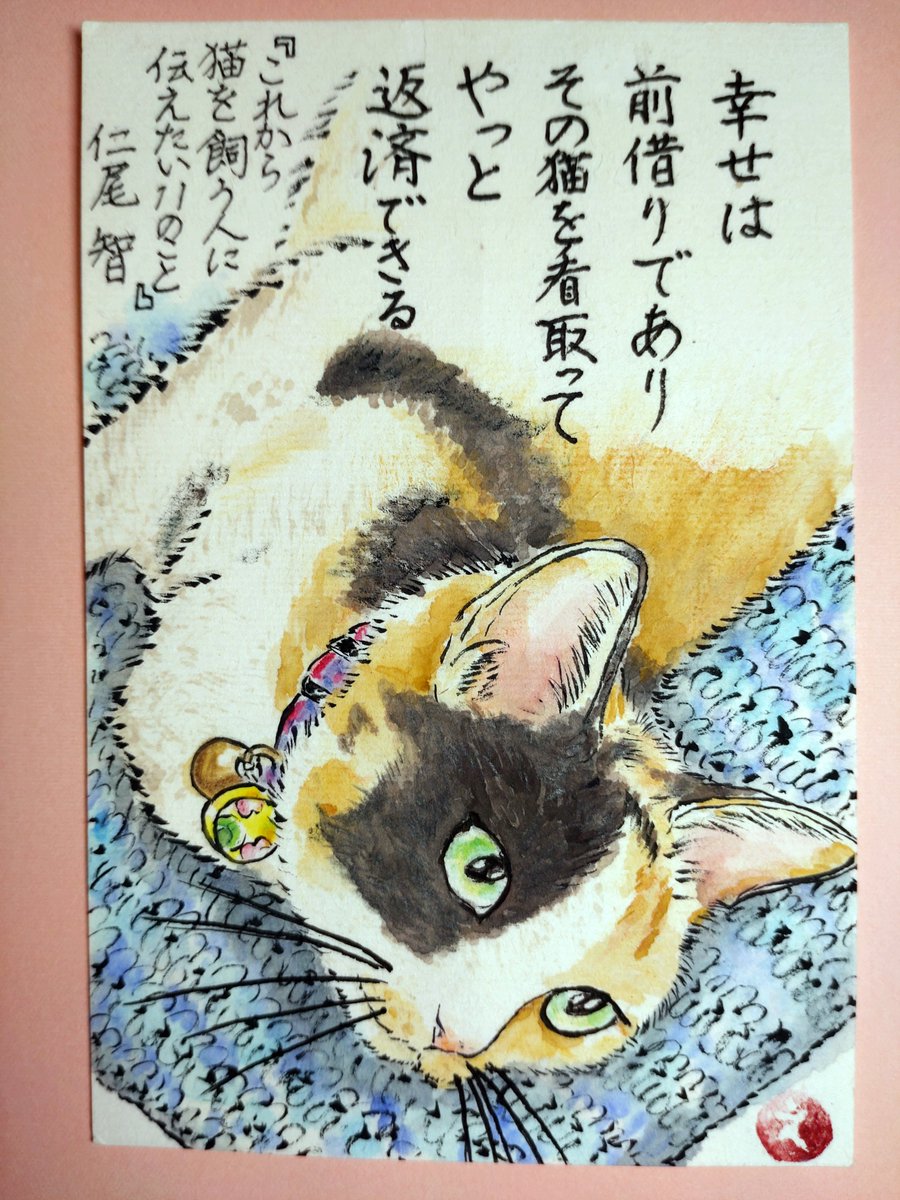 幸せは
前借りであり
その猫を看取って
やっと
返済できる
『これから
猫を飼う人に
伝えたい11のこと』
仁尾智